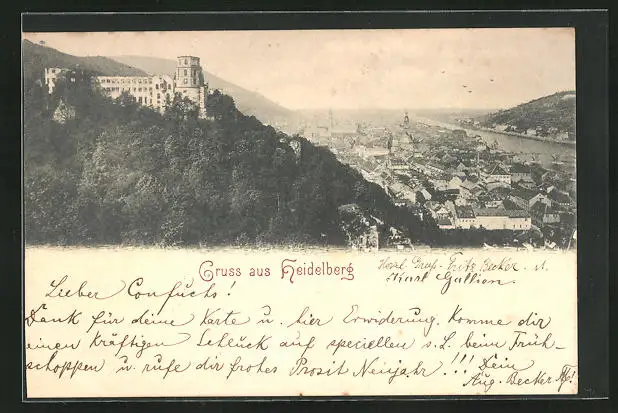 Gruss aus Heidelberg
Herzl. Gruß Fritz Becker. u.
Karl Gallion.
Lieber Confuchs!
Dank für deine Karte u. hier Erwiderung. Komme dir
einen kräftigen Schluck auf speciellen s. L. beim Früh-
schoppen u. rufe dir frohes Prosit Neujahr!!! Dein
Aug. Becker